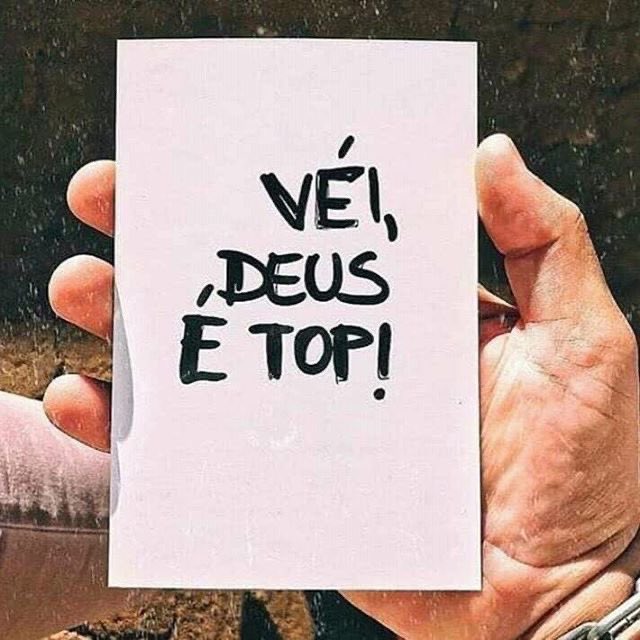 VÉI,
DEUS
É TOP!